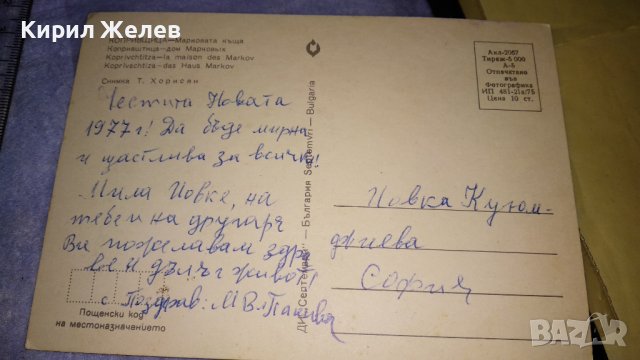 Кирил Желев
КОПРИВЩИЦА—Марковата къща
Копривштица—дом Марковых
Koprivchtitza—la maison des Markov
Koprivschtiza—das Haus Markov
Снимка Т. Хорисян
Честита Новата
1977 г! Да бъде мирна
и щастлива за всички!
Мила Йовке, на
тебе и на другаря
Ви пожелавам здра
ве и дълъг живот!
с Поздрав: М Вл
Пощенски код
на местоназначението
ДИ „Септември" — България Septemvri — Bulgaria
Акл-2067
Тираж-5 000
А-6
Отпечатано
във
Фотографика
ИП 481-21а/75
Цена 10 ст.
Йовка Куюм-
джиева
София
BAZAR.bg